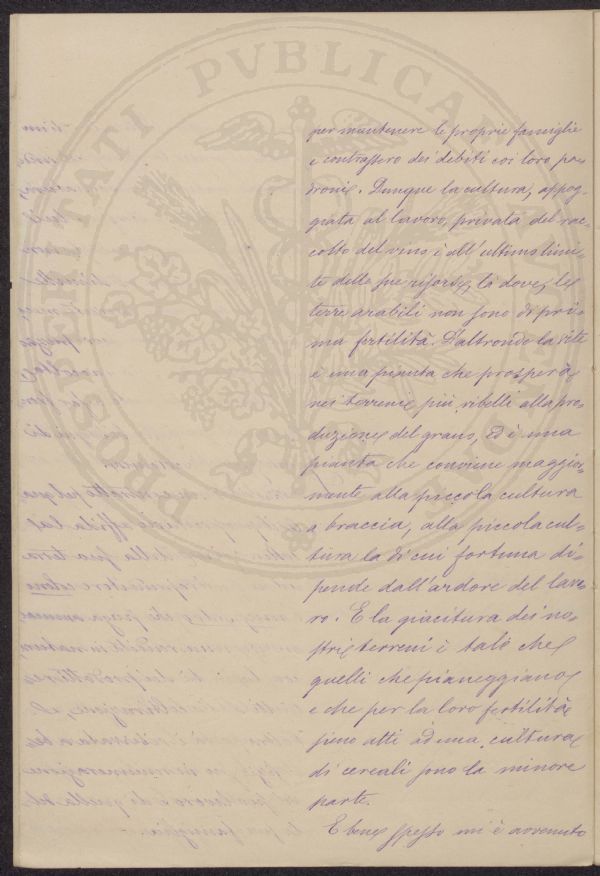 PROSPERITATI PVBLICAE AVGENDAE
per mantenere le proprie famiglie
e contrassero dei debiti coi loro pa-
droni. Dunque la cultura, appog-
giata al lavoro, privata del rac-
colto del vino, è all'ultimo limi-
te delle sue risorse, là dove, le
terre arabili non sono di pri-
ma fertilità. D'altronde la vite
è una pianta che prospera
nei terreni più ribelli alla pro-
duzione del grano, ed è una
pianta che conviene maggior-
mente alla piccola cultura
a braccia, alla piccola cul-
tura la di cui fortuna di-
pende dall'ardore del lavo-
ro. E la giacitura dei no-
stri terreni è tale che
quelli che pianeggiano
e che per la loro fertilità
sieno atti ad una cultura
di cereali sono la minore
parte.
E bene spesso mi è avvenuto